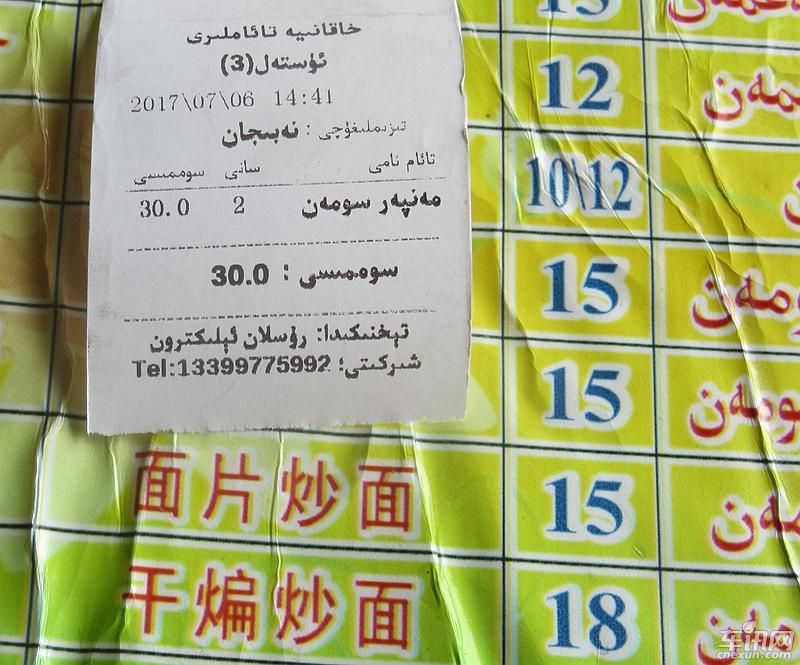 خاقانىيە تائاملىرى
ئۈستەل(3)
2017\07\06 14:41
تىزىملىغۈچى : نەبىجان
تائام نامى سانى سوممىسى
مەنپەر سومەن 2 30.0
سوممىسى : 30.0
تېخنىكىدا: رۇسلان ئېلىكترون
شىركىتى؛ Tel:13399775992
12
10\12
15
15
面片炒面 15
干煸炒面 18
车讯网
cnexun.com